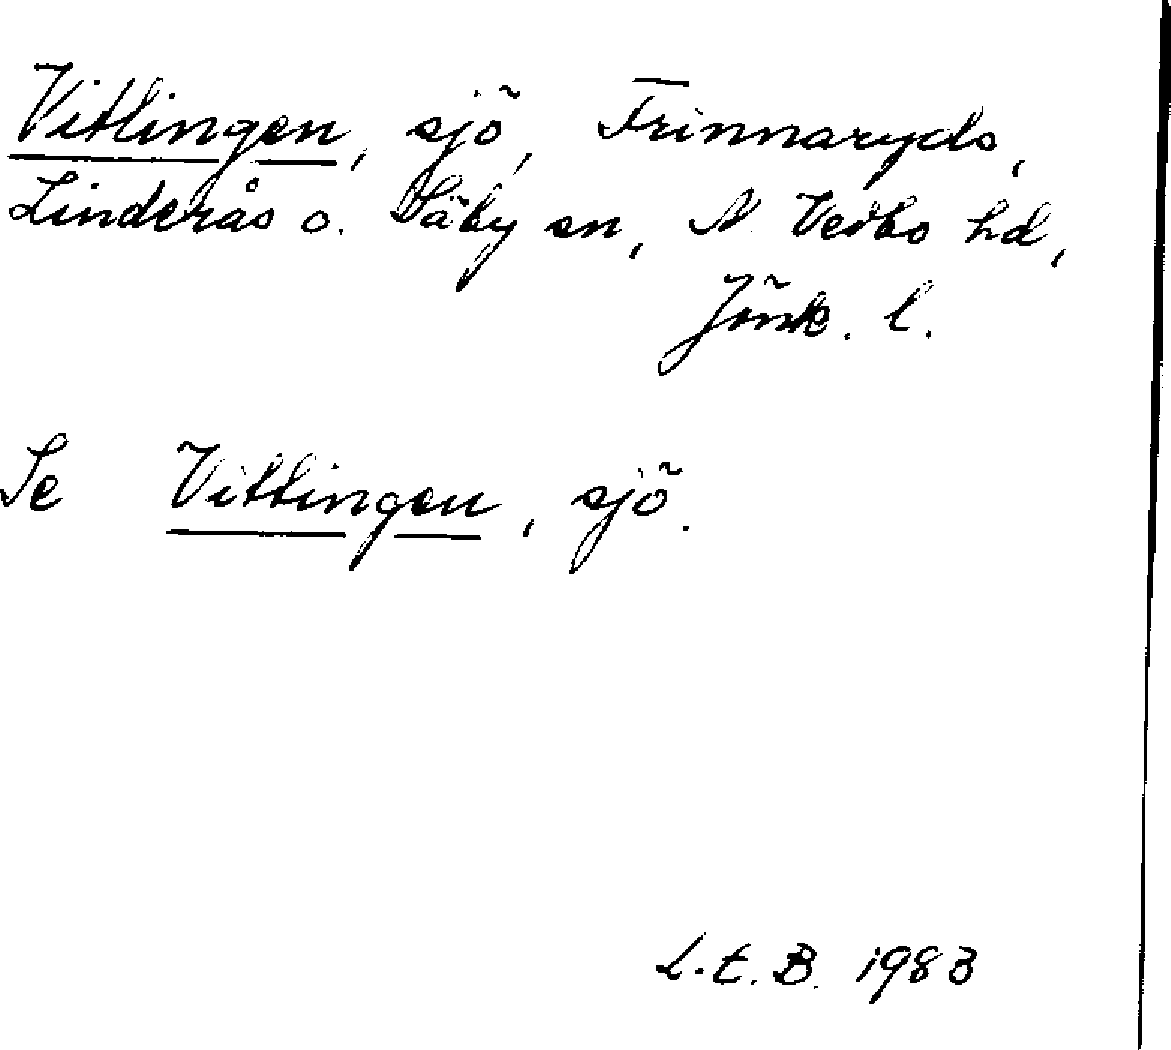 Vitlingen, sjö, Frinnaryds,
Linderås o. Säby sn, N. Vedbo hd,
Jönk. l.
Se Vittingen, sjö.
L.E.B. 1983